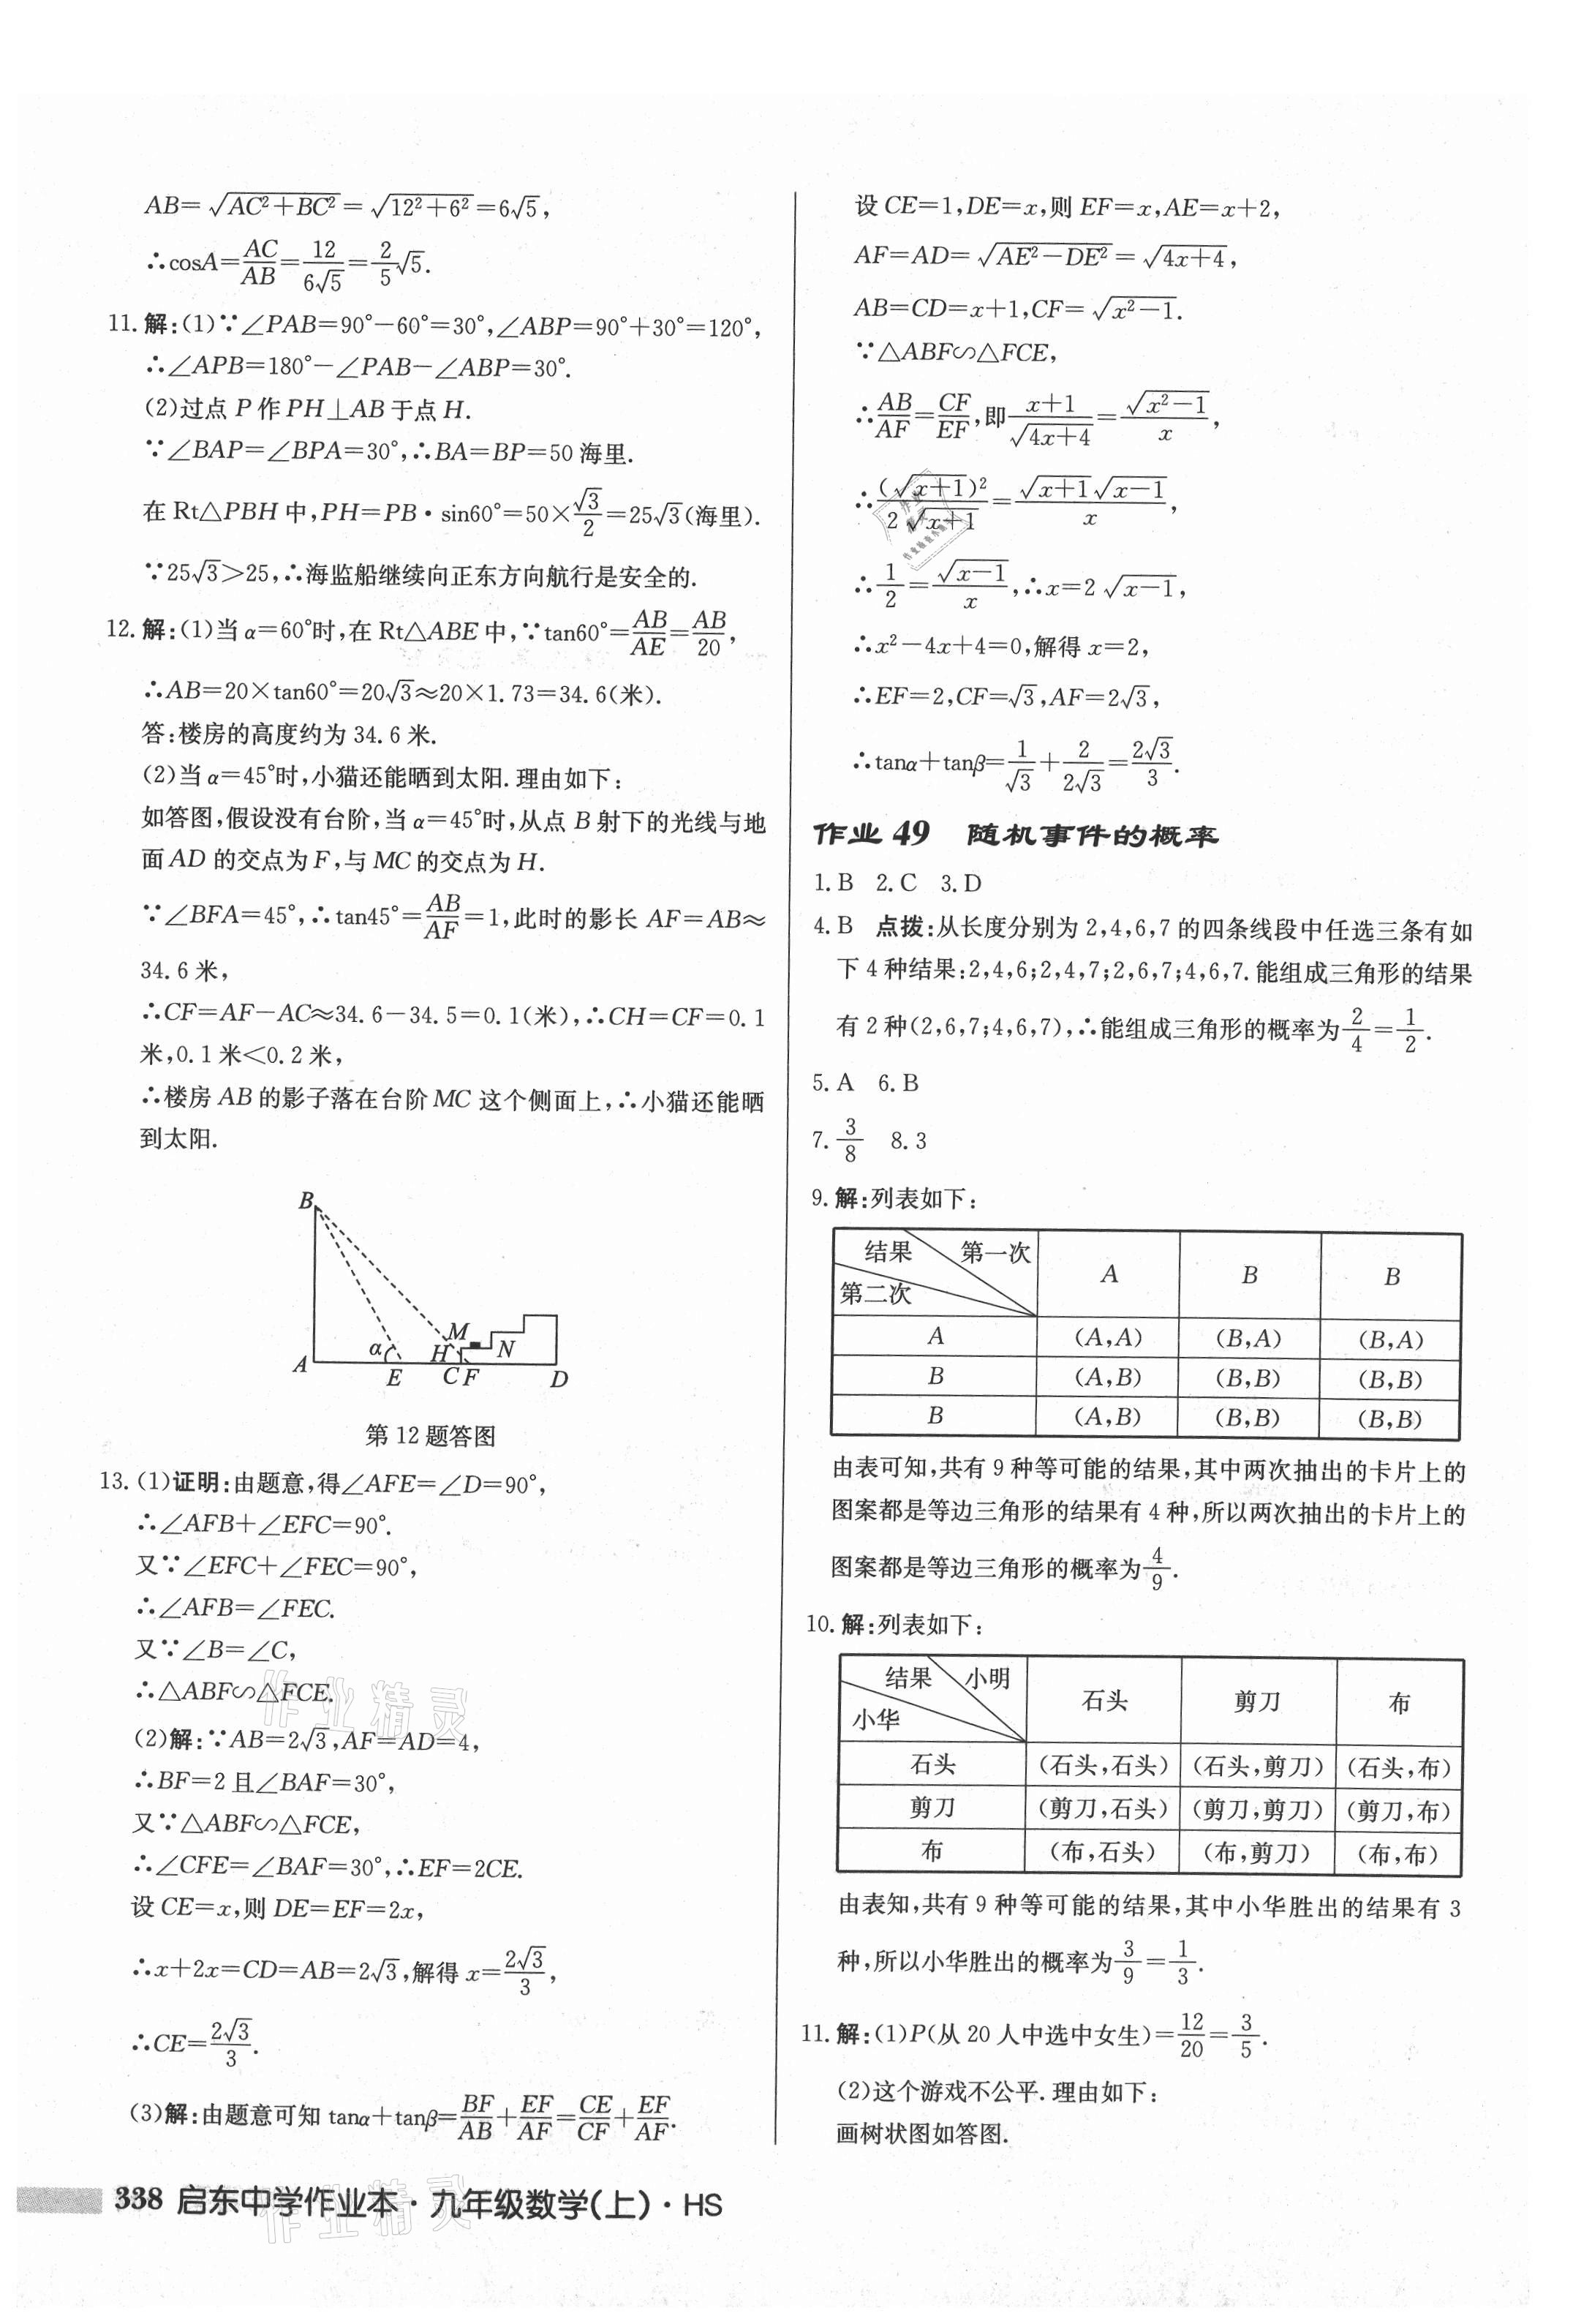 AB=√(AC²+BC²)=√(12²+6²)=6√5,
∴cosA=AC/AB=12/(6√5)=2/5√5.
11. 解:(1)∵∠PAB=90°-60°=30°,∠ABP=90°+30°=120°,
∴∠APB=180°-∠PAB-∠ABP=30°.
(2)过点 P 作 PH⊥AB 于点 H.
∵∠BAP=∠BPA=30°,∴BA=BP=50 海里.
在 Rt△PBH 中,PH=PB·sin60°=50×√3/2=25√3(海里).
∵25√3>25,∴海监船继续向正东方向航行是安全的.
12. 解:(1)当 α=60°时,在 Rt△ABE 中,∵tan60°=AB/AE=AB/20,
∴AB=20×tan60°=20√3≈20×1.73=34.6(米).
答:楼房的高度约为 34.6 米.
(2)当 α=45°时,小猫还能晒到太阳.理由如下:
如答图,假设没有台阶,当 α=45°时,从点 B 射下的光线与地
面 AD 的交点为 F,与 MC 的交点为 H.
∵∠BFA=45°,∴tan45°=AB/AF=1,此时的影长 AF=AB≈
34.6 米,
∴CF=AF-AC≈34.6-34.5=0.1(米),∴CH=CF=0.1
米,0.1 米<0.2 米,
∴楼房 AB 的影子落在台阶 MC 这个侧面上,∴小猫还能晒
到太阳.
B
M
α
H
N
A
E
C F
D
第 12 题答图
13. (1)证明:由题意,得∠AFE=∠D=90°,
∴∠AFB+∠EFC=90°.
又∵∠EFC+∠FEC=90°,
∴∠AFB=∠FEC.
又∵∠B=∠C,
∴△ABF∽△FCE.
(2)解:∵AB=2√3,AF=AD=4,
∴BF=2 且∠BAF=30°,
又∵△ABF∽△FCE,
∴∠CFE=∠BAF=30°,∴EF=2CE.
设 CE=x,则 DE=EF=2x,
∴x+2x=CD=AB=2√3,解得 x=2√3/3,
∴CE=2√3/3.
(3)解:由题意可知 tanα+tanβ=BF/AB+EF/AF=CE/CF+EF/AF.
设 CE=1,DE=x,则 EF=x,AE=x+2,
AF=AD=√(AE²-DE²)=√(4x+4),
AB=CD=x+1,CF=√(x²-1).
∵△ABF∽△FCE,
∴AB/AF=CF/EF,即(x+1)/√(4x+4)=√(x²-1)/x,
∴(√(x+1))²/(2√(x+1))=√(x+1)√(x-1)/x,
∴1/2=√(x-1)/x,∴x=2√(x-1),
∴x²-4x+4=0,解得 x=2,
∴EF=2,CF=√3,AF=2√3,
∴tanα+tanβ=1/√3+2/(2√3)=2√3/3.
作业 49 随机事件的概率
1. B 2. C 3. D
4. B 点拨:从长度分别为 2,4,6,7 的四条线段中任选三条有如
下 4 种结果:2,4,6;2,4,7;2,6,7;4,6,7.能组成三角形的结果
有 2 种(2,6,7;4,6,7),∴能组成三角形的概率为2/4=1/2.
5. A 6. B
7. 3/8 8. 3
9. 解:列表如下:
结果 第一次 第二次 A B B
A (A,A) (B,A) (B,A)
B (A,B) (B,B) (B,B)
B (A,B) (B,B) (B,B)
由表可知,共有 9 种等可能的结果,其中两次抽出的卡片上的
图案都是等边三角形的结果有 4 种,所以两次抽出的卡片上的
图案都是等边三角形的概率为4/9.
10. 解:列表如下:
结果 小明 小华 石头 剪刀 布
石头 (石头,石头) (石头,剪刀) (石头,布)
剪刀 (剪刀,石头) (剪刀,剪刀) (剪刀,布)
布 (布,石头) (布,剪刀) (布,布)
由表知,共有 9 种等可能的结果,其中小华胜出的结果有 3
种,所以小华胜出的概率为3/9=1/3.
11. 解:(1)P(从 20 人中选中女生)=12/20=3/5.
(2)这个游戏不公平.理由如下:
画树状图如答图.
作业精灵
338 启东中学作业本·九年级数学(上)·HS
作业精灵